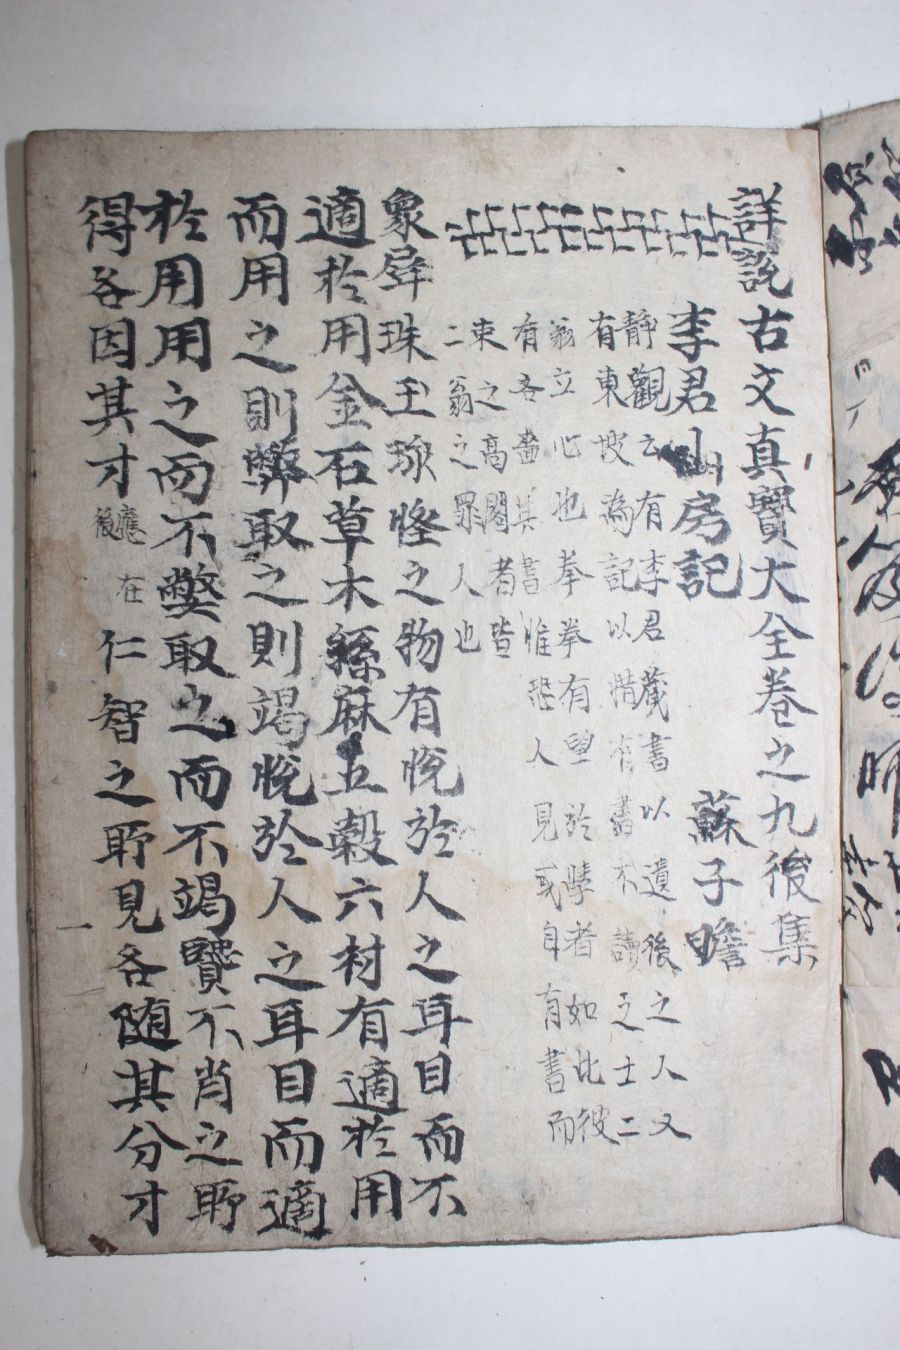 詳說古文真寶大全卷之九後集
李君山房記 蘇子瞻
靜觀云有李君藏書以遺後之人又
有東坡為記以惜有書不讀之士二
翁立心也拳拳有望於學者如此彼
有吝嗇其書惟恐人見或自有書而
束之高閣者皆
二翁之罪人也
象犀珠玉珎怪之物有悅於人之耳目而不
適於用金石草木絲麻五穀六材有適於用
而用之則弊取之則竭悅於人之耳目而適
於用用之而不獘取之而不竭賢不肖之所
得各因其才應後在仁智之所見各随其分才